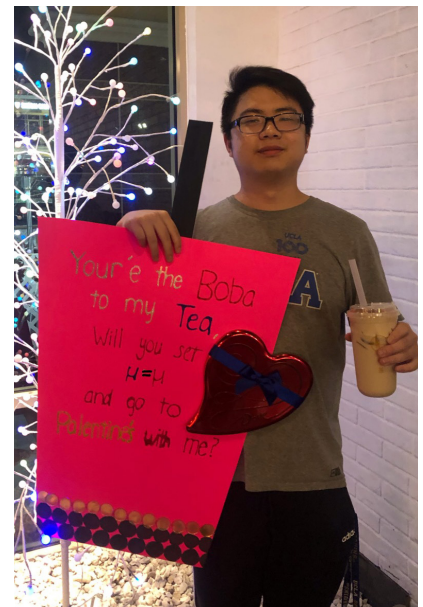 Your'e the Boba
to my Tea
Will you set
μ=μ
and go to
Palentines with me?
UCLA
100
A
adidas